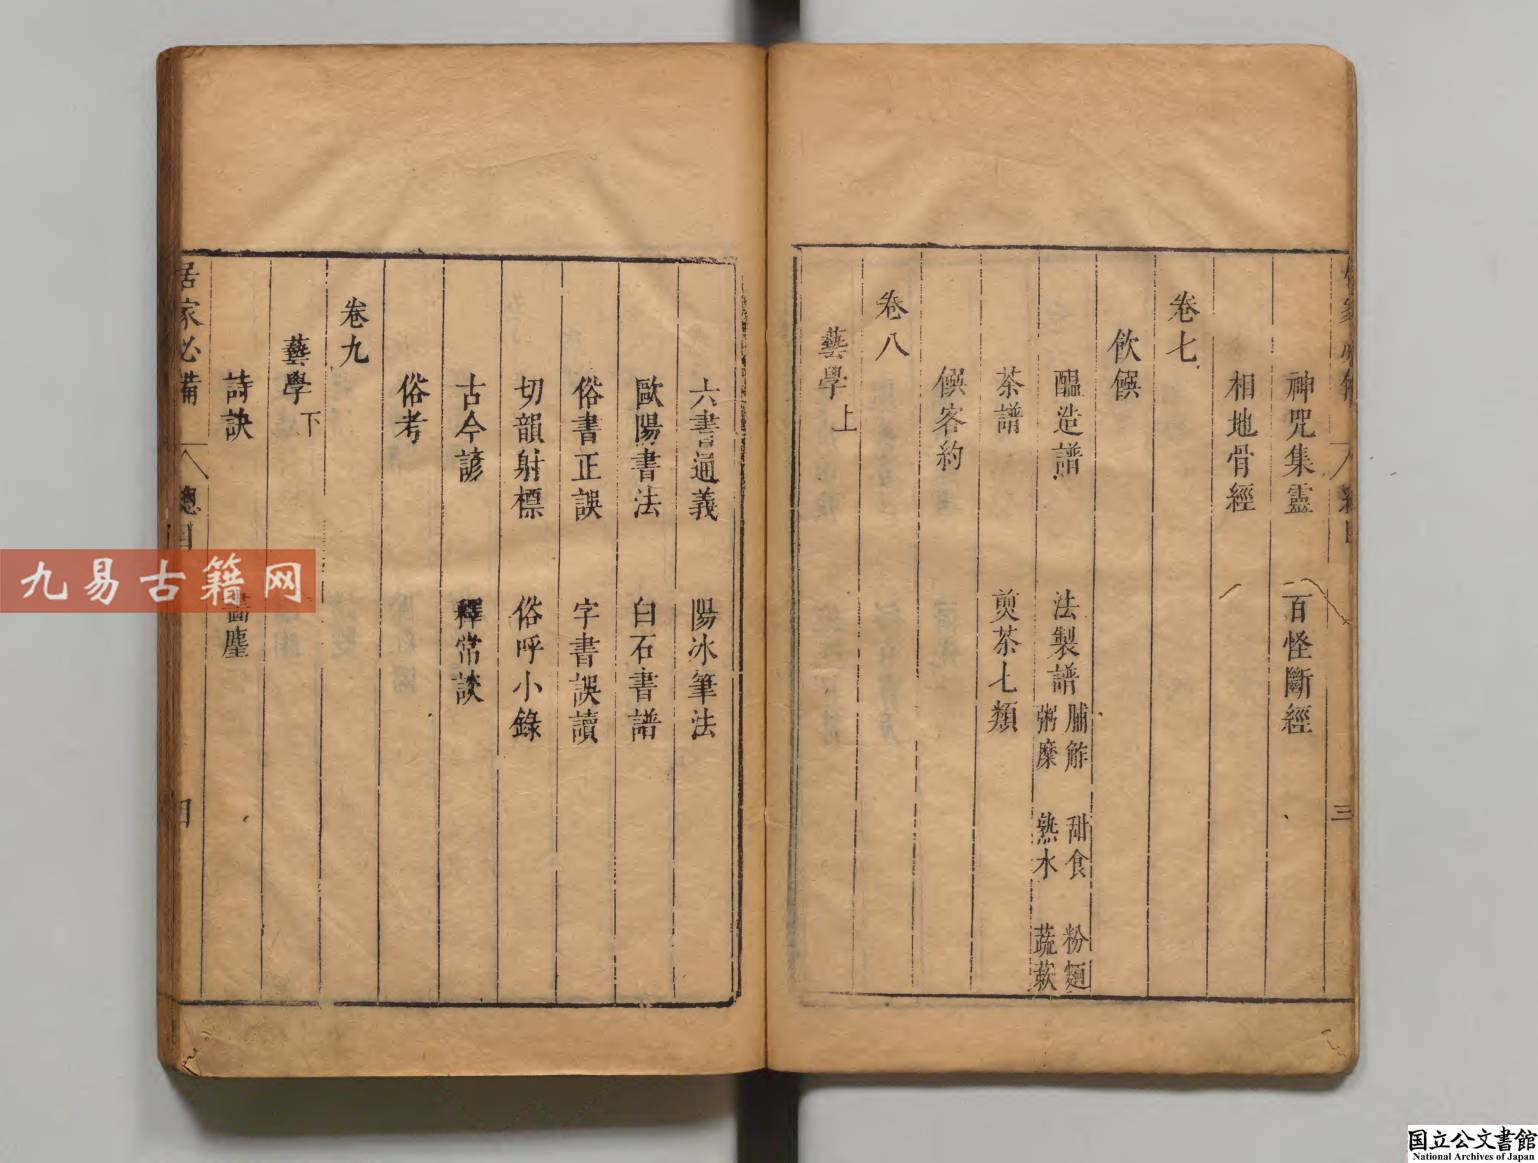 神咒集靈　百怪斷經
相地骨經
卷七
飲饌
醞造譜　法製譜　脯鮓　甜食　粉麵
粥糜　熟水　蔬菽
茶譜　煎茶七類
饌客約
卷八
藝學上
六書通義　陽冰筆法
歐陽書法　白石書譜
俗書正誤　字書誤讀
切韻射標　俗呼小錄
古今諺　釋常談
俗考
卷九
藝學下
詩訣　畵麈
居家必備　總目　四
三
九易古籍网
国立公文書館
National Archives of Japan